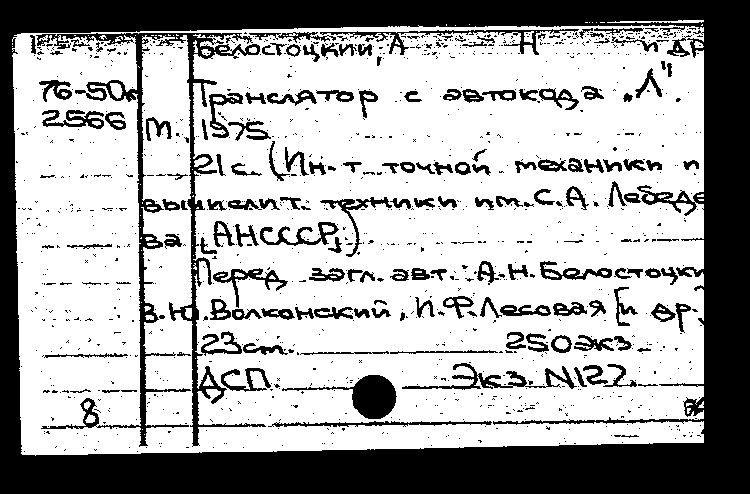 Белостоцкий, А Н и др
76-50к Транслятор с автокода „Л".
2566 М. 1975
21 с. (Ин-т точной механики и
вычислит. техники им. С.А. Лебеде
ва [АНСССР].)
Перед загл. авт.: А.Н. Белостоцки
В.Ю. Волконский, И.Ф. Лесовая [и др.]
23 cm. 250 экз.
ДСП. Экз. N127.
8